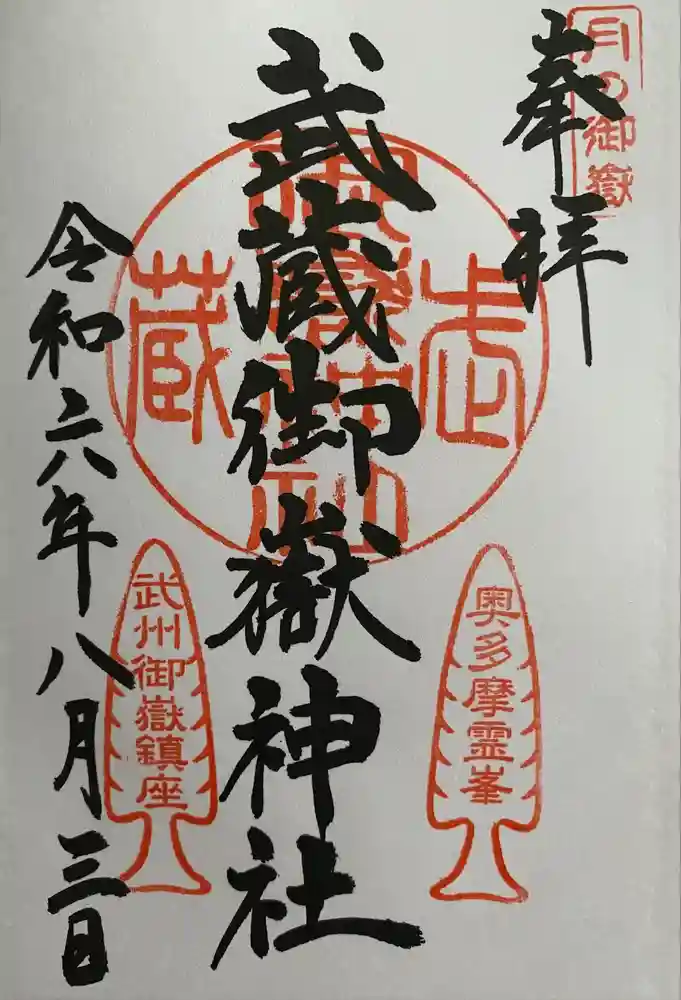 月の御嶽
奉拝
武蔵御嶽神社
武蔵
御嶽神社
奥多摩霊峯
武州御嶽鎮座
令和六年八月三日